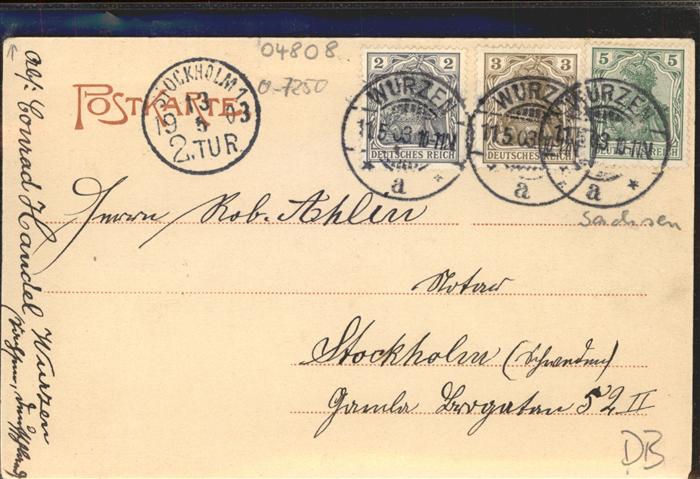 04808
0-7250
POSTKARTE
STOCKHOLM 1
13
19 03
5
2.TUR
2 2
DEUTSCHES REICH
3 3
DEUTSCHES REICH
5 5
REICH
WURZEN
11.5.03.10-11V.
a
WURZEN
11.5.03.10-11V.
a
WURZEN
03.10-11V.
a
Sachsen
Herrn Rob. Ahlen
Notar
Stockholm (Schweden)
Gamla Brogatan 52 II
DB
Abs: Conrad Handel Wurzen
(Sachsen, Deutschland)